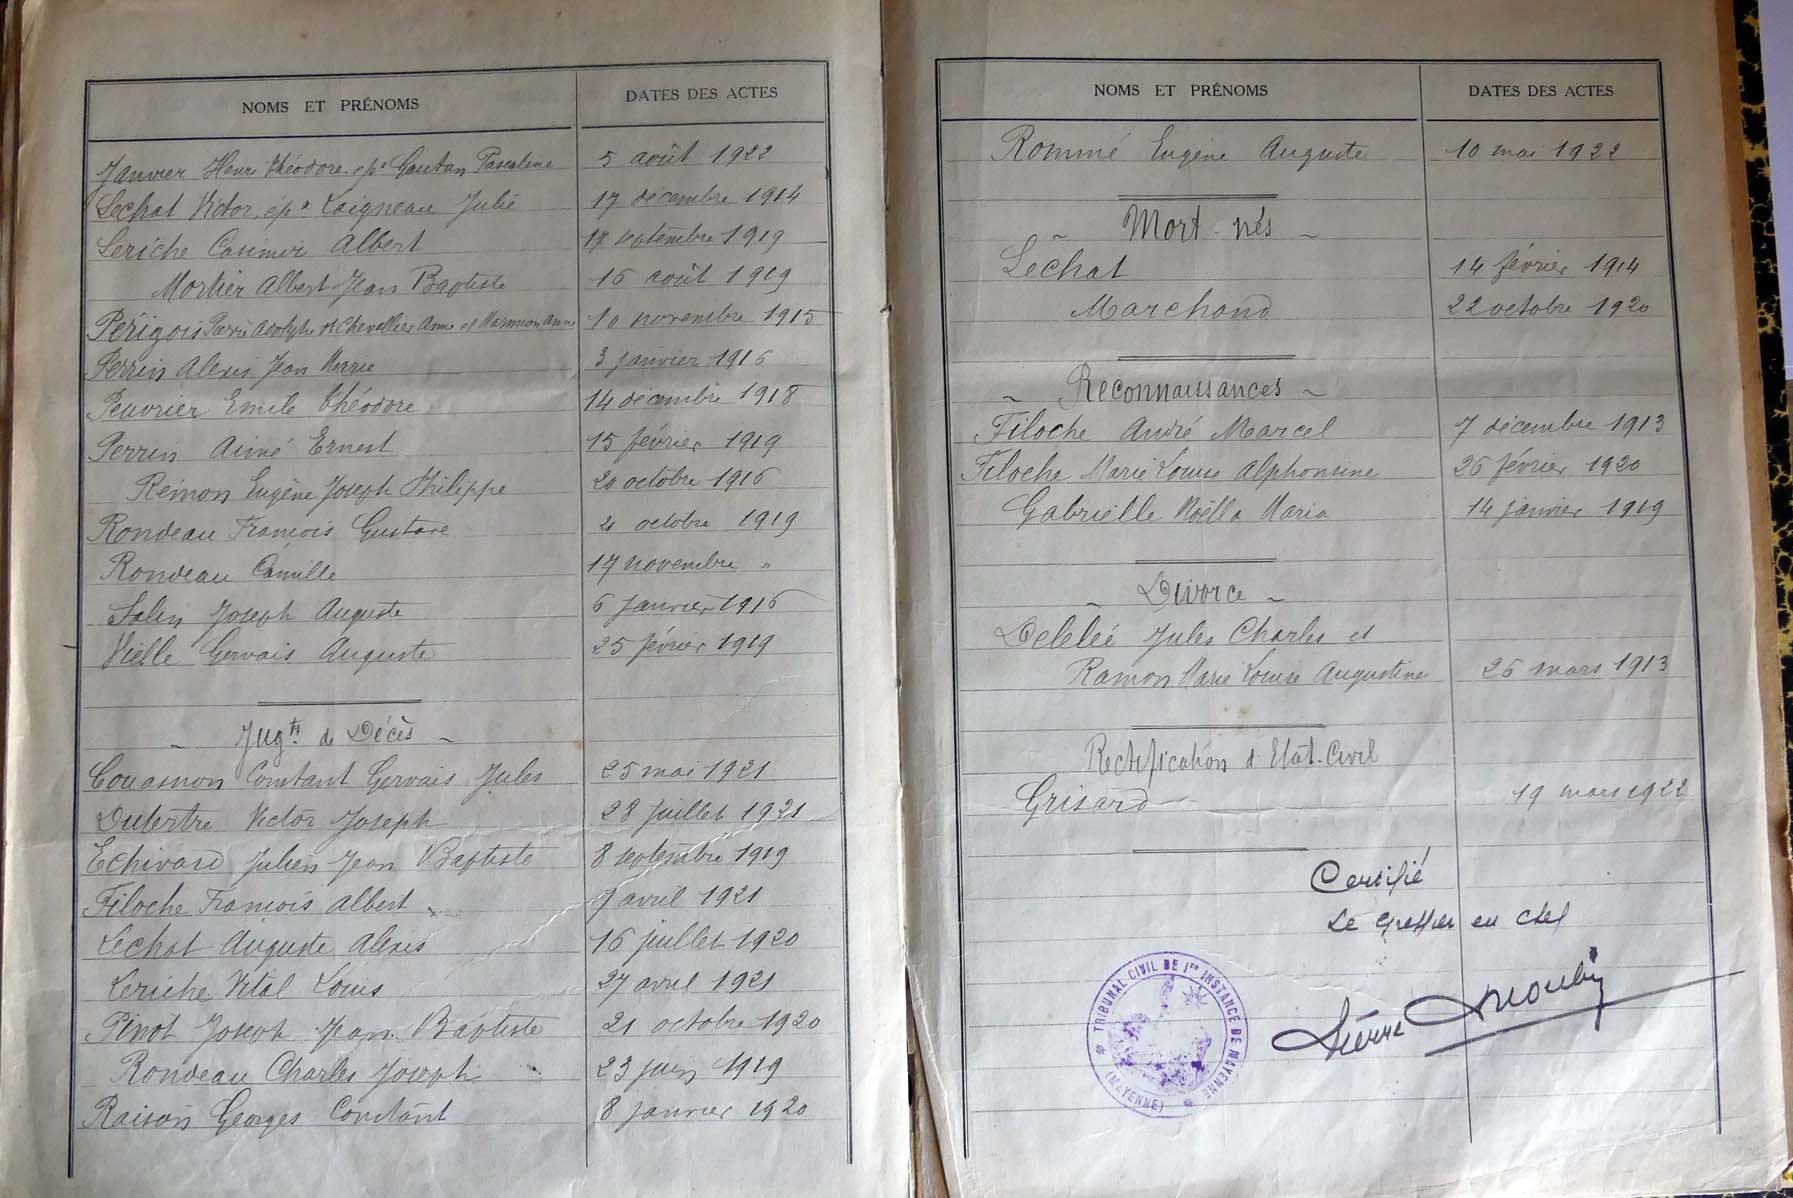 NOMS ET PRÉNOMS DATES DES ACTES
Janvier Henri Théodore, épx Pascaline 5 août 1922
Lechat Victor, épx Laigneau Julie 17 décembre 1914
Leriche Casimir Albert septembre 1919
Mortier Albert Jean Baptiste 16 août 1919
Périgois Pierre Adolphe et Chevellier Anne et Anne 10 novembre 1915
Perrin Alexis Jean Marie 3 janvier 1916
Peuvrier Emile Théodore 14 décembre 1918
Perrin Aimé Ernest 15 février 1919
Remon Eugène Joseph Philippe 20 octobre 1916
Rondeau François Gustave octobre 1919
Rondeau Camille 17 novembre "
Salin Joseph Auguste 6 janvier 1916
Vielle Gervais Auguste 25 février 1919
- Jugts de Décès -
Couasnon Constant Gervais Jules 25 mai 1921
Dutertre Victor Joseph 28 juillet 1921
Echivard Julien Jean Baptiste 8 septembre 1919
Filoche François Albert 7 avril 1921
Lechat Auguste Alexis 16 juillet 1920
Leriche Vital Louis 27 avril 1921
Pinot Joseph Jean Baptiste 21 octobre 1920
Rondeau Charles Joseph 23 juin 1919
Raison Georges Constant 8 janvier 1920
NOMS ET PRÉNOMS DATES DES ACTES
Rommé Eugène Auguste 10 mai 1922
- Mort-nés -
Lechat 14 février 1914
Marchand 22 octobre 1920
- Reconnaissances -
Filoche André Marcel 7 décembre 1913
Filoche Marie Louise Alphonsine 26 février 1920
Gabrielle Noëlla Maria 14 janvier 1919
- Divorce -
Delélée Jules Charles et
Ramon Marie Louise Augustine 26 mars 1913
Rectification d'Etat-Civil
Grisard 19 mars 1922
Certifié
Le Greffier en chef
TRIBUNAL CIVIL DE 1re INSTANCE DE MAYENNE
(MAYENNE)